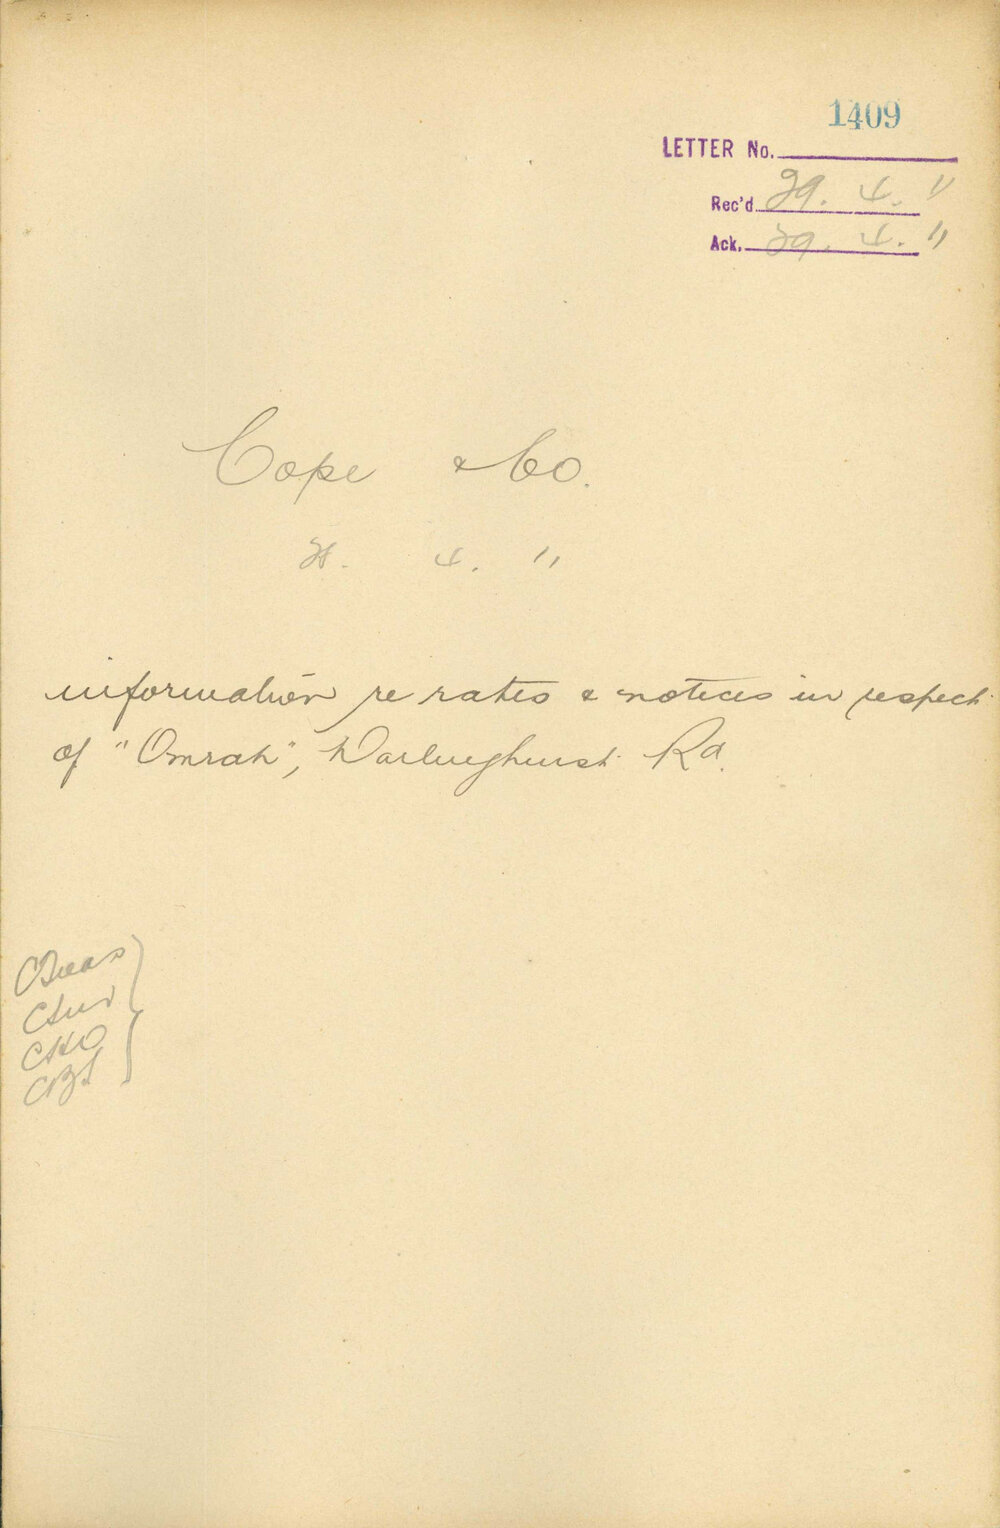 1409
LETTER No.
Rec'd 29. 4. 11
Ack. 29. 4. 11
Cope & Co.
28. 4. 11
information re rates & notices in respect
of "Omrah", Darlinghurst Rd.
CHO
CBS